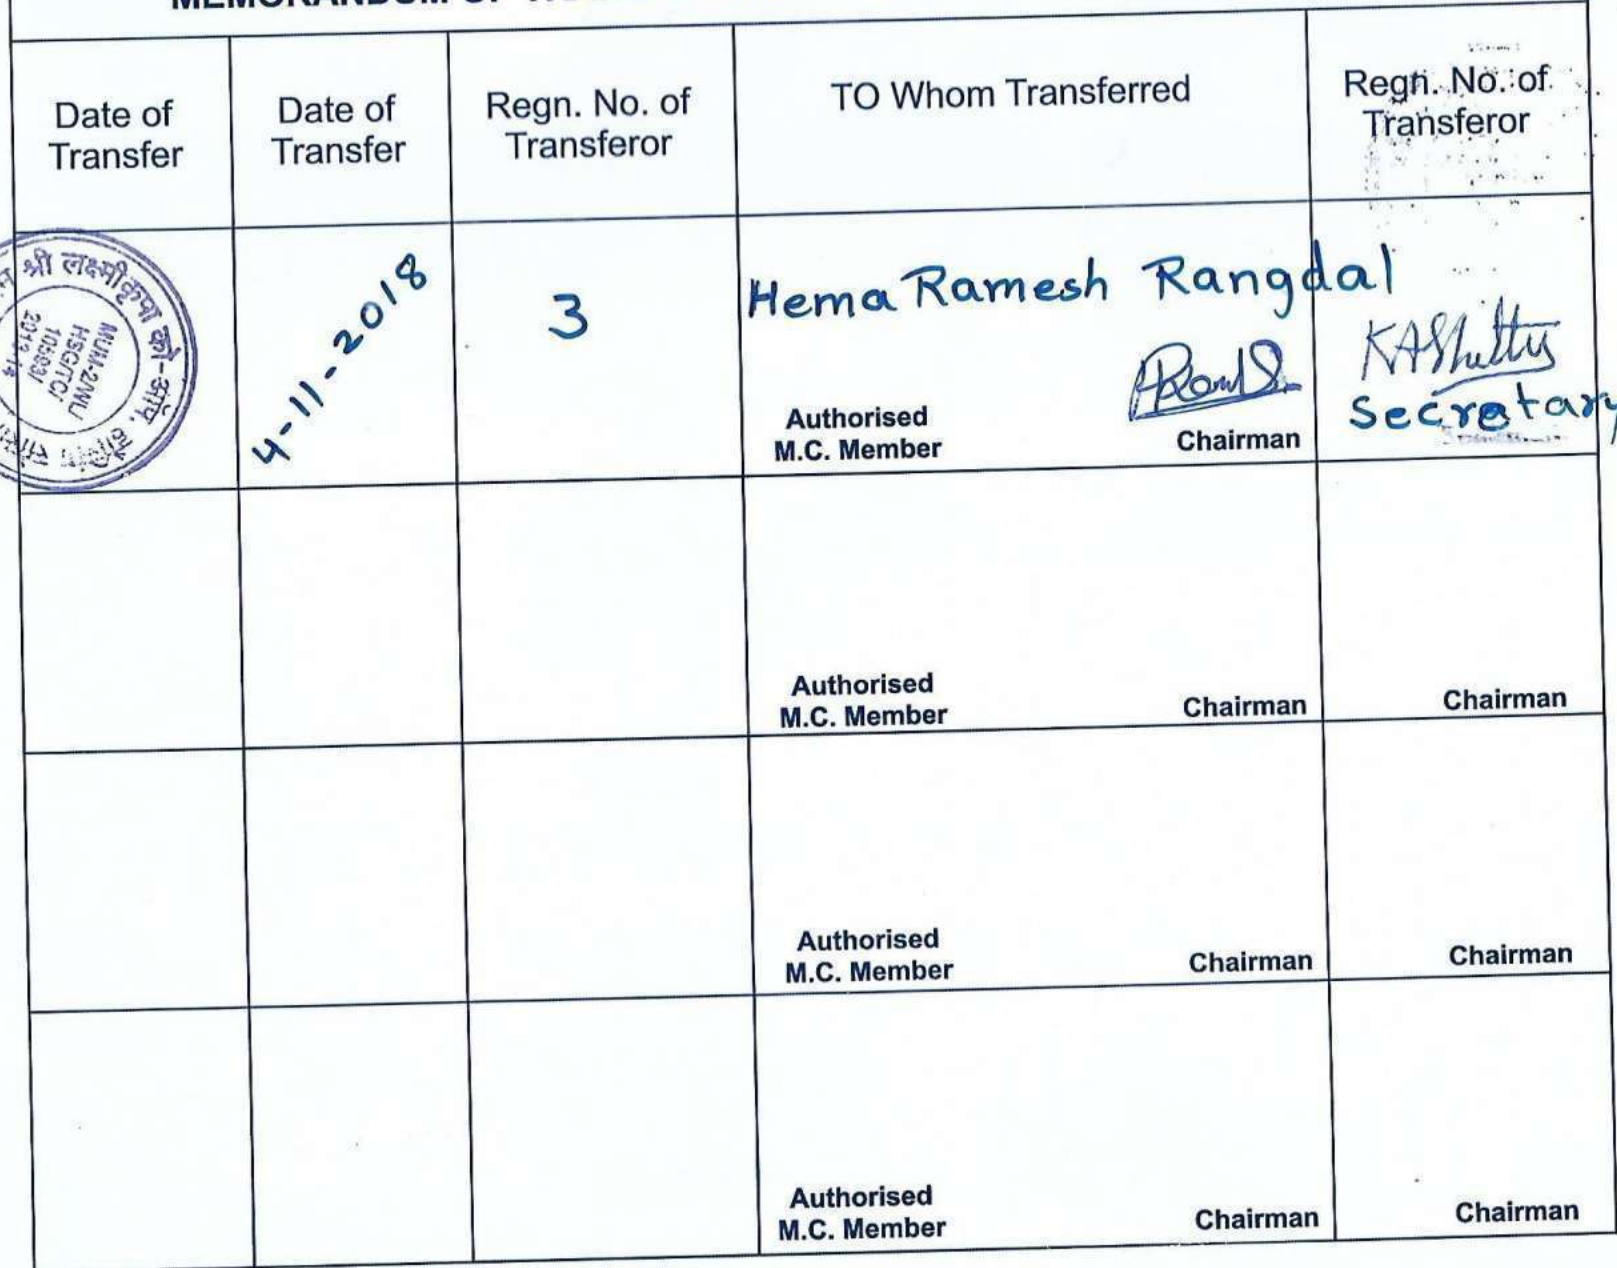 MEMORANDUM OF
Date of
Transfer
Date of
Transfer
Regn. No. of
Transferor
TO Whom Transferred
Regn. No. of
Transferor
श्री लक्ष्मीकृपा को-ऑप. हौसिंग
MUM-2/WL/
HSG/TC/
10593/
2013-14
4-11-2018
3
Hema Ramesh Rangdal
KAShetty
Secretary
Authorised
M.C. Member
Chairman
Authorised
M.C. Member
Chairman
Chairman
Authorised
M.C. Member
Chairman
Chairman
Authorised
M.C. Member
Chairman
Chairman